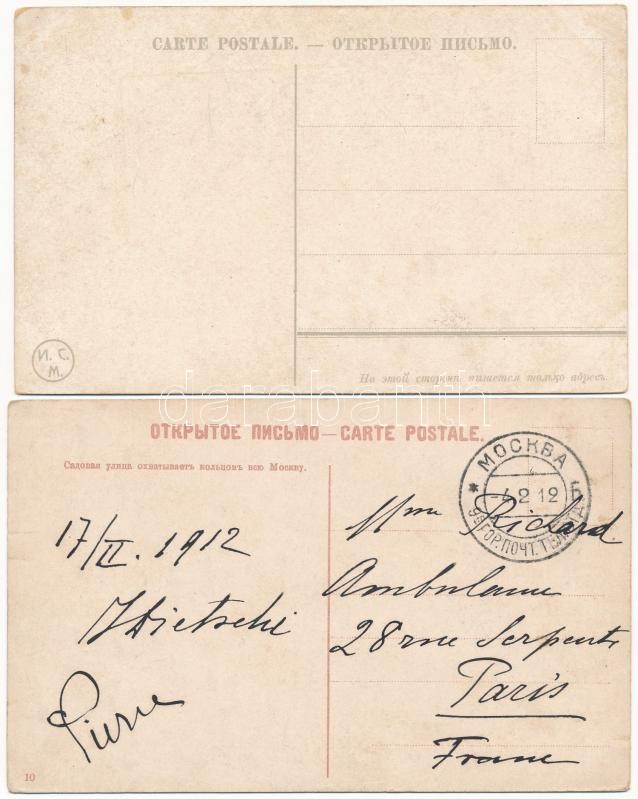 CARTE POSTALE. — ОТКРЫТОЕ ПИСЬМО.
И. С.
М.
На этой сторонѣ пишется только адресъ.
darabanth
ОТКРЫТОЕ ПИСЬМО—CARTE POSTALE.
Садовая улица охватываетъ кольцомъ всю Москву.
МОСКВА
-4.2 12
ГОР.ПОЧТ.ТЕЛ.
17/II. 1912
Pierre
Mme Richard
Ambulance
28 rue Serpente
Paris
France
10